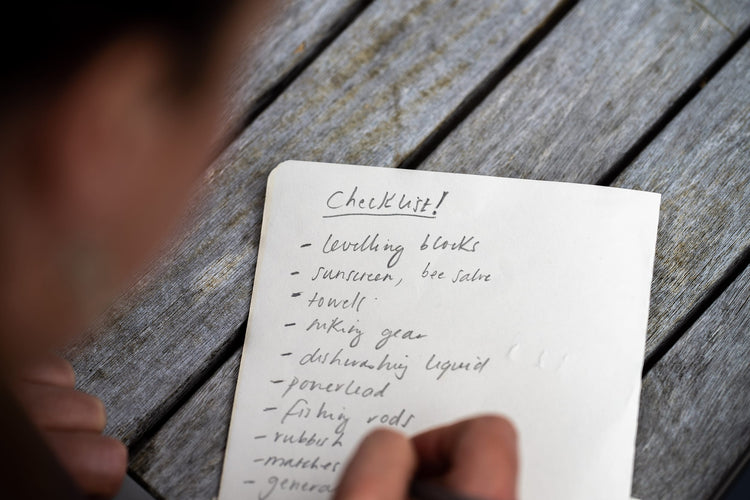 Checklist!
- levelling blocks
- sunscreen, bee salve
- towels
- hiking gear
- dishwashing liquid
- powerlead
- fishing rods
- rubbish
- matches
- genera